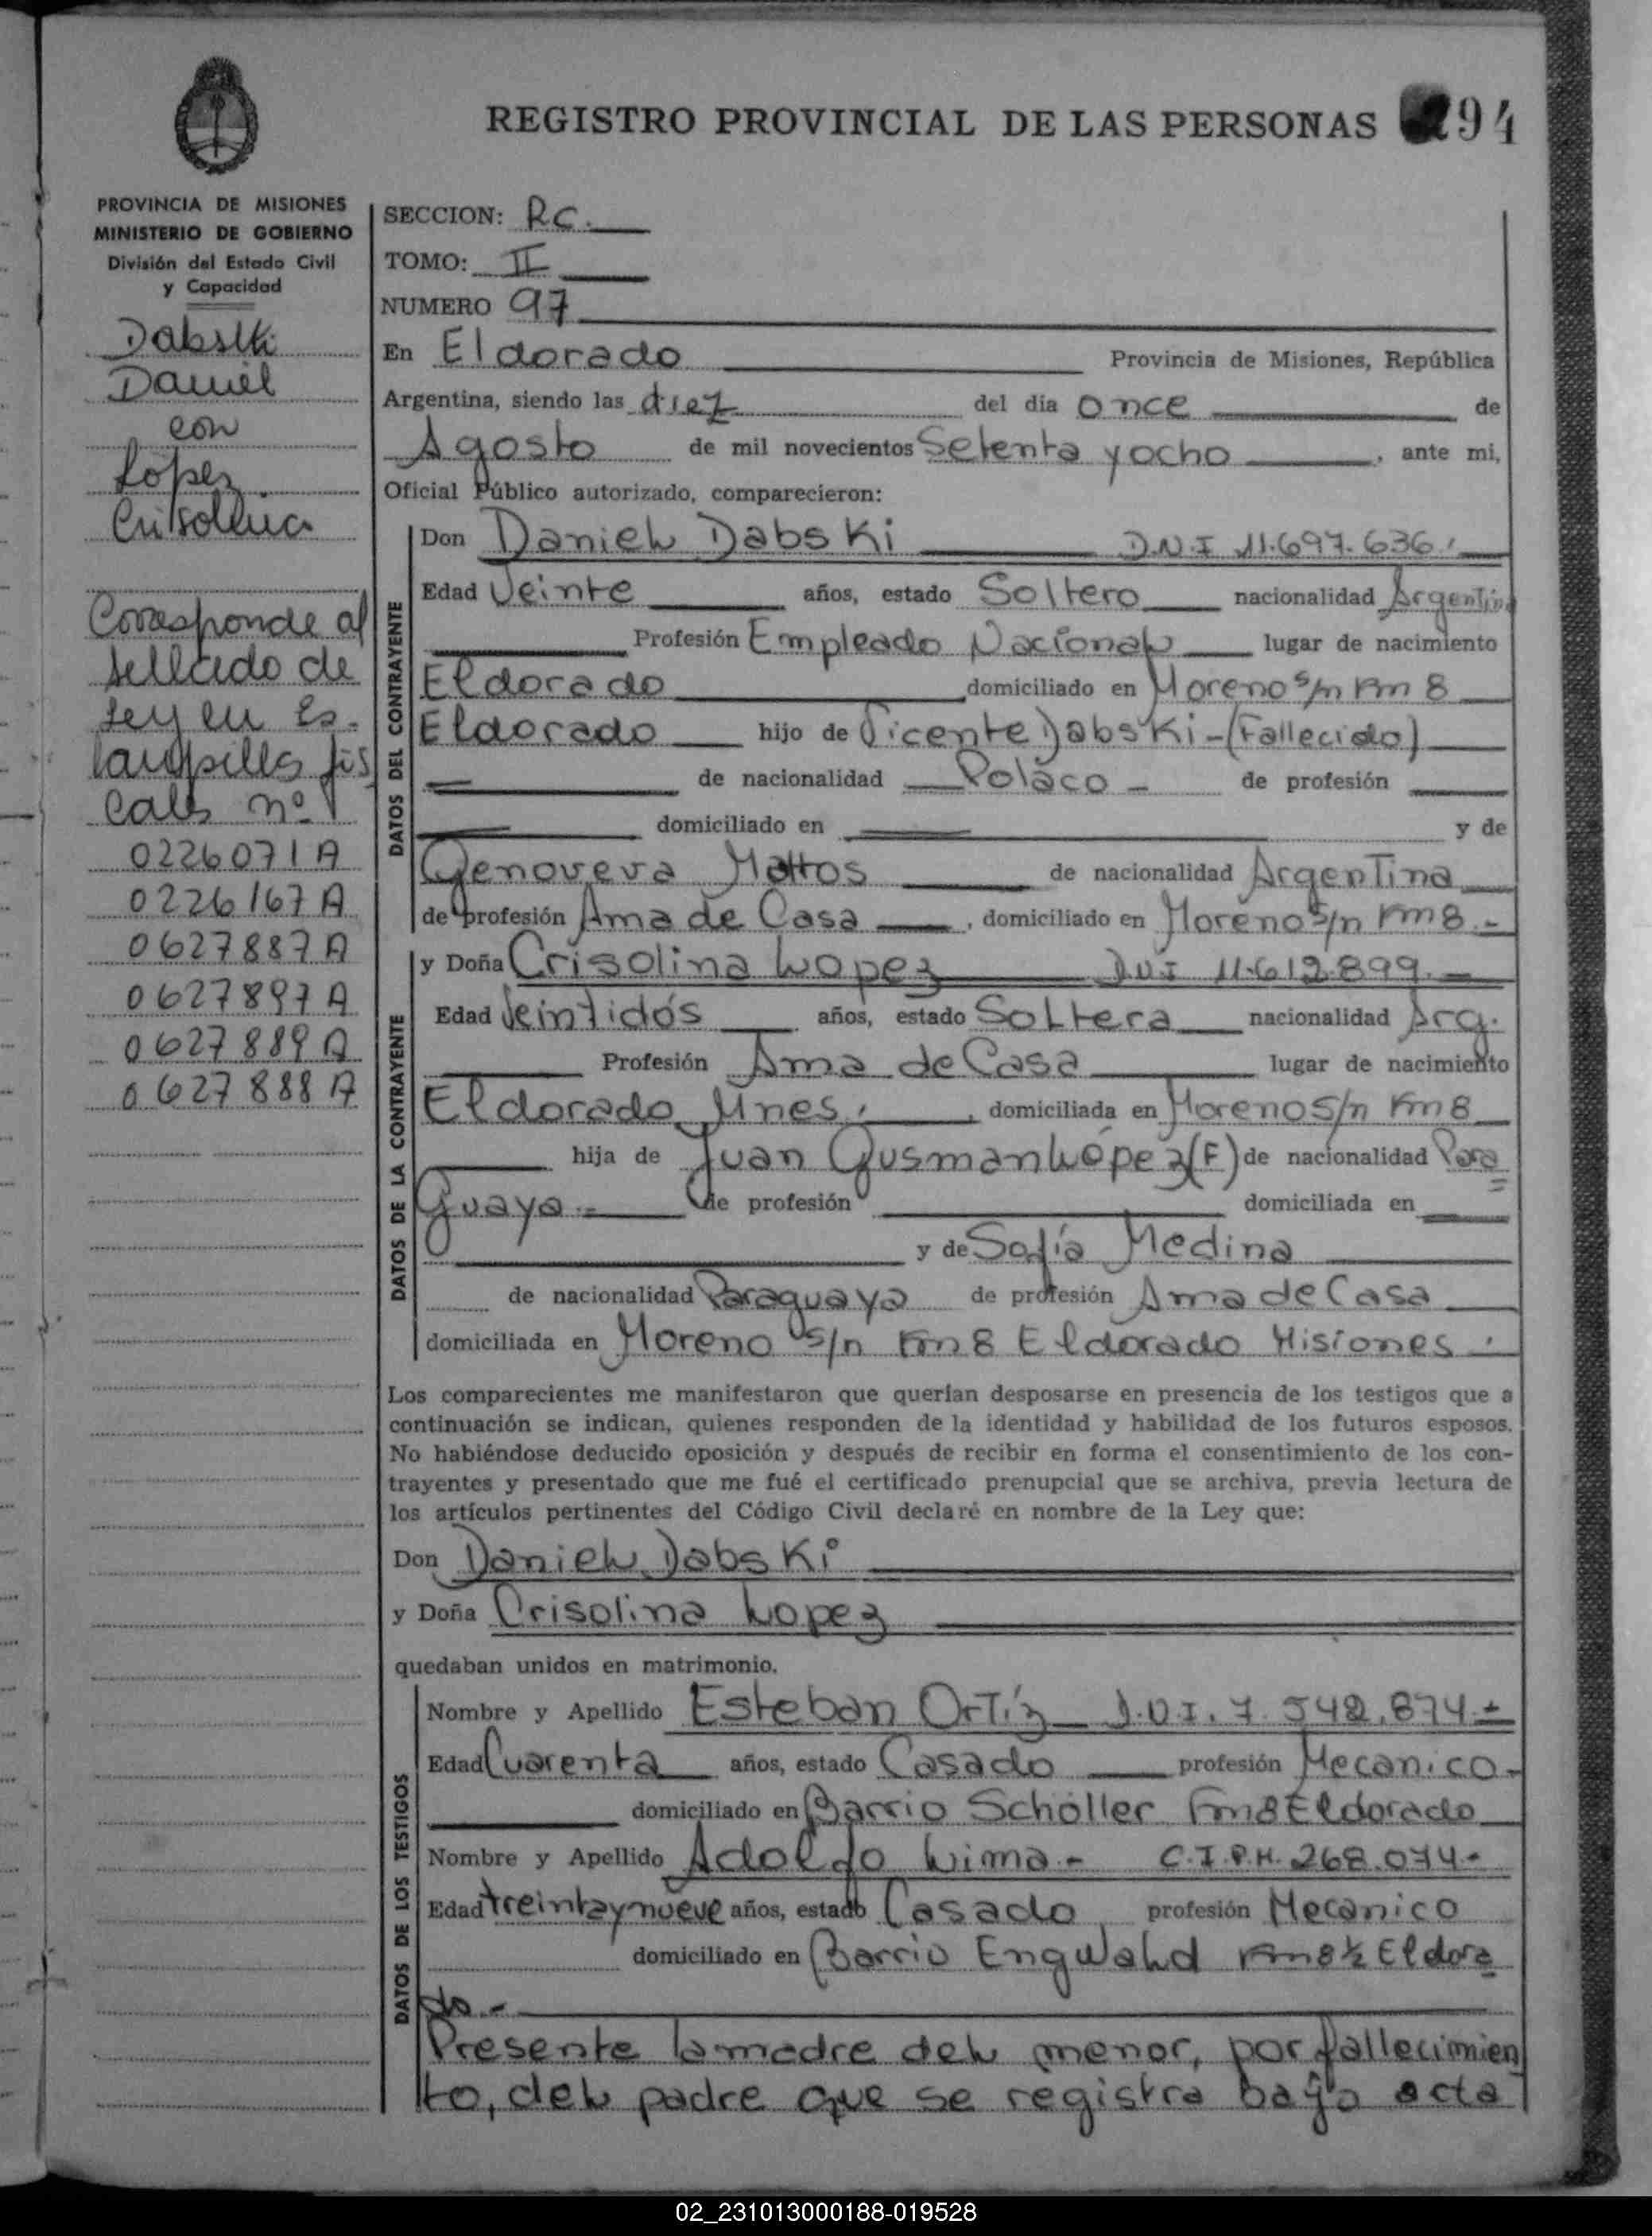 REGISTRO PROVINCIAL DE LAS PERSONAS 294
PROVINCIA DE MISIONES
MINISTERIO DE GOBIERNO
División del Estado Civil
y Capacidad
Dabski
Daniel
con
López
Crisolina
Corresponde al
sellado de
ley en es-
tampillas fis
cales nº
0226071A
0226167A
0627887A
0627897A
0627889A
0627888A
SECCION: RC.
TOMO: II
NUMERO 97
En Eldorado Provincia de Misiones, República
Argentina, siendo las diez del día once de
Agosto de mil novecientos Setenta y ocho, ante mi,
Oficial Público autorizado, comparecieron:
DATOS DEL CONTRAYENTE
Don Daniel Dabski D.N.I 11.697.636.
Edad Veinte años, estado Soltero nacionalidad Argentina
Profesión Empleado Nacional lugar de nacimiento
Eldorado domiciliado en Moreno s/n Km 8
Eldorado hijo de Vicente Dabski-(Fallecido)
de nacionalidad Polaco - de profesión
domiciliado en y de
Genoveva Mattos de nacionalidad Argentina
de profesión Ama de Casa, domiciliado en Moreno s/n Km8.-
DATOS DE LA CONTRAYENTE
y Doña Crisolina Lopez D.N.I 11.612.899.
Edad Veintidós años, estado Soltera nacionalidad Arg.
Profesión Ama de Casa lugar de nacimiento
Eldorado Mnes., domiciliada en Moreno S/n Km8
hija de Juan Gusman López (F) de nacionalidad Para=
Guaya.= de profesión domiciliada en
y de Sofía Medina
de nacionalidad Paraguaya de profesión Ama de Casa
domiciliada en Moreno s/n Km8 Eldorado Misiones.
Los comparecientes me manifestaron que querían desposarse en presencia de los testigos que a
continuación se indican, quienes responden de la identidad y habilidad de los futuros esposos.
No habiéndose deducido oposición y después de recibir en forma el consentimiento de los con-
trayentes y presentado que me fué el certificado prenupcial que se archiva, previa lectura de
los artículos pertinentes del Código Civil declaré en nombre de la Ley que:
Don Daniel Dabski
y Doña Crisolina Lopez
quedaban unidos en matrimonio.
DATOS DE LOS TESTIGOS
Nombre y Apellido Esteban Ortíz D.N.I. 7.542.874.-
Edad Cuarenta años, estado Casado profesión Mecanico-
domiciliado en Barrio Schöller Km8 Eldorado
Nombre y Apellido Adolfo Lima.- C.I.P.M. 268.074-
Edad treinta y nueve años, estado Casado profesión Mecanico
domiciliado en Barrio Engwald Km8½ Eldora
do.-
Presente la madre del menor, por fallecimien
to, del padre que se registra bajo acta
02_231013000188-019528